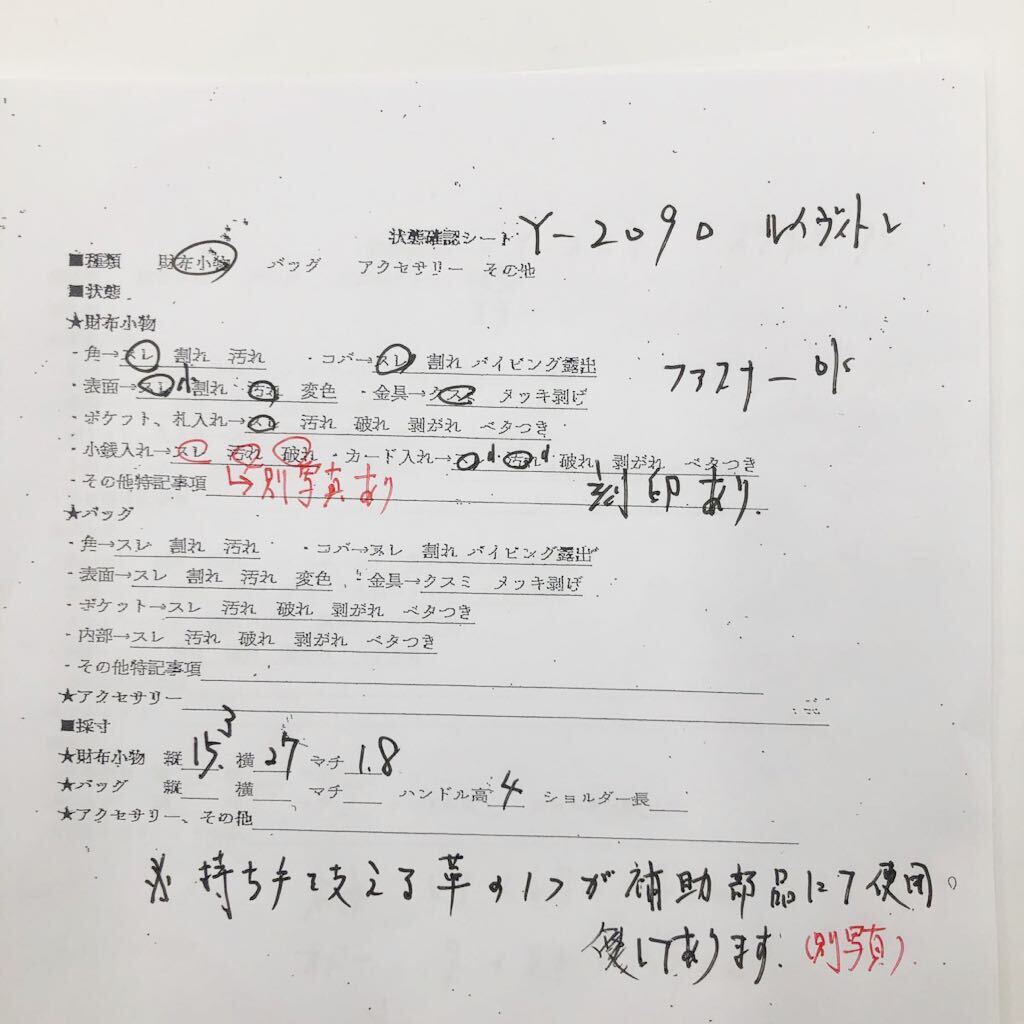 状態確認シート Y-2090 ルイヴィトン
■種類 財布小物 バッグ アクセサリー その他
■状態
★財布小物
・角→スレ 割れ 汚れ ・コバ→スレ 割れ パイピング露出
ファスナーOK
・表面→スレ小 割れ 汚れ 変色 ・金具→クスミ メッキ剥げ
・ポケット、札入れ→スレ 汚れ 破れ 剥がれ ベタつき
・小銭入れ→スレ 汚れ 破れ ・カード入れ→スレ 汚れ 破れ 剥がれ ベタつき
・その他特記事項 ↳別写真あり 刻印あり.
★バッグ
・角→スレ 割れ 汚れ ・コバ→スレ 割れ パイピング露出
・表面→スレ 割れ 汚れ 変色 ・金具→クスミ メッキ剥げ
・ポケット→スレ 汚れ 破れ 剥がれ ベタつき
・内部→スレ 汚れ 破れ 剥がれ ベタつき
・その他特記事項
★アクセサリー
■採寸
★財布小物 縦 15.3 横 27 マチ 1.8
★バッグ 縦 横 マチ ハンドル高 4 ショルダー長
★アクセサリー、その他
※持ち手を支える革の1つが補助部品にて使用。
してあります. (別写真)